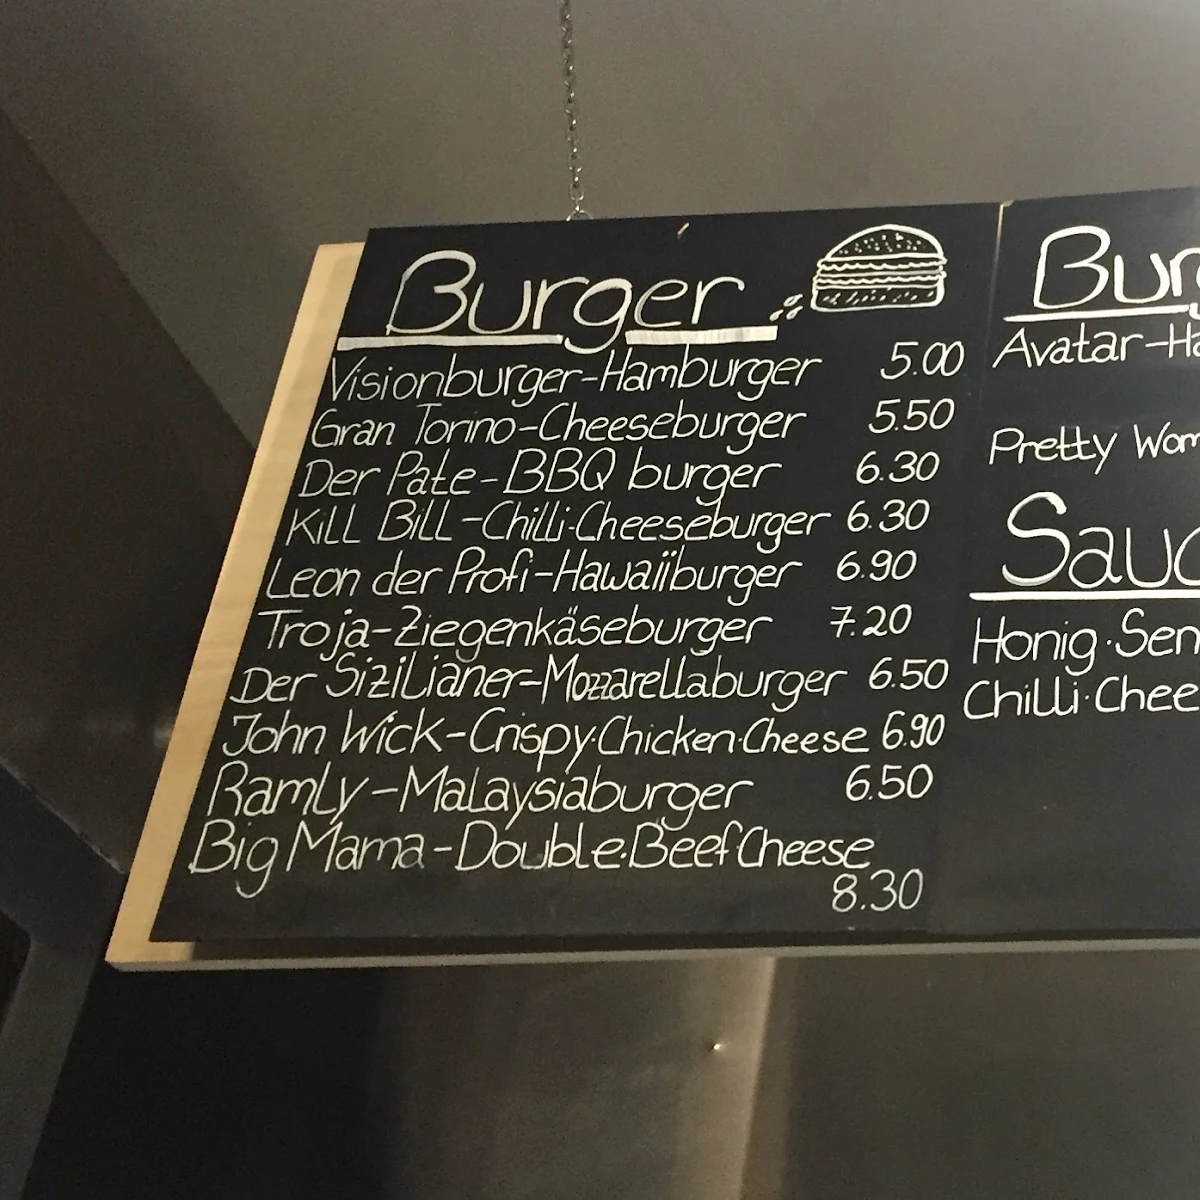 Burger
Visionburger-Hamburger 5.00
Gran Torino-Cheeseburger 5.50
Der Pate-BBQ burger 6.30
Kill Bill-Chilli·Cheeseburger 6.30
Leon der Profi-Hawaiiburger 6.90
Troja-Ziegenkäseburger 7.20
Der Sizilianer-Mozzarellaburger 6.50
John Wick-Crispy·Chicken·Cheese 6.90
Ramly-Malaysiaburger 6.50
Big Mama-Double·Beef Cheese
8.30
Bur
Avatar-Ha
Pretty Wom
Sauc
Honig·Sen
Chilli·Chee